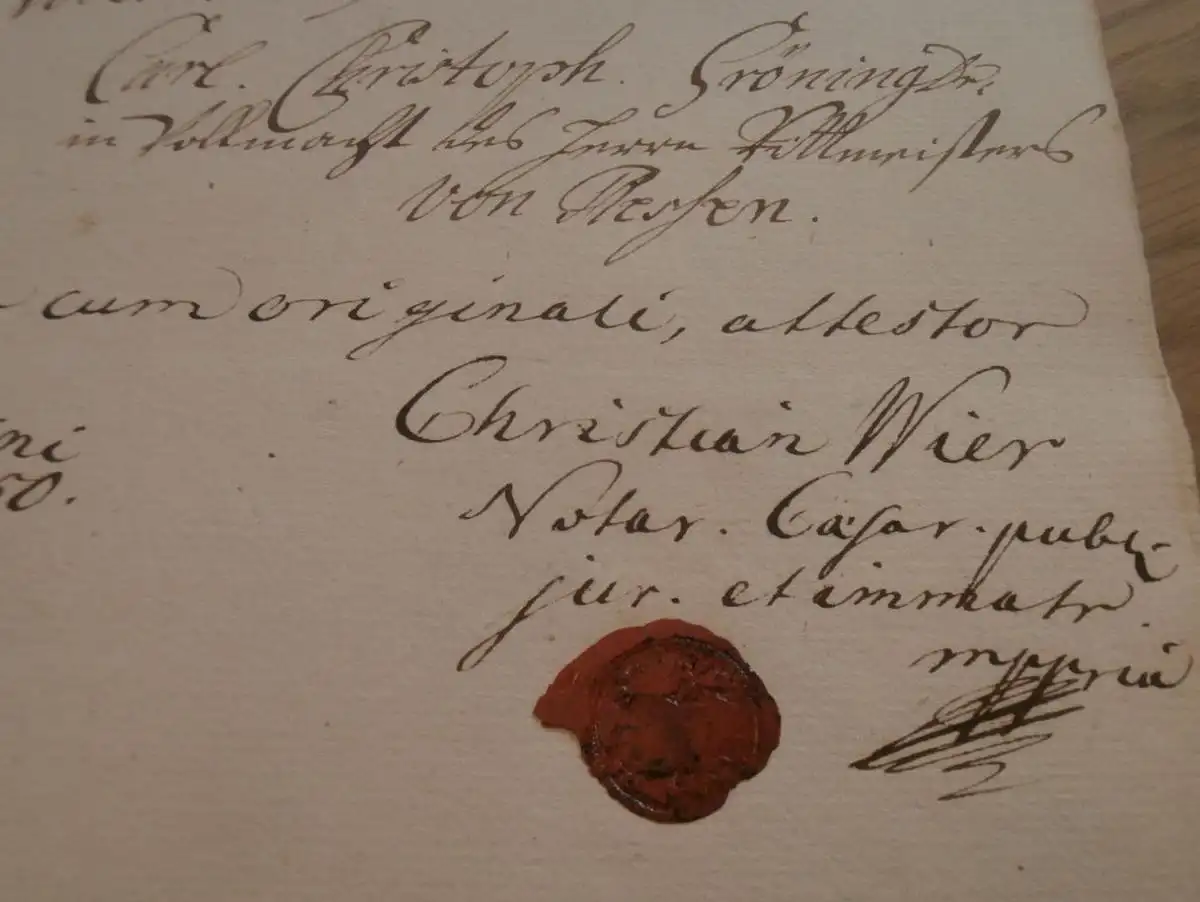 Carl. Christoph. Gröning Dr.
in Vollmacht des Herrn Rittmeisters
von Plessen.
cum originali, attestor
Christian Wier
ni
50.
Notar. Cæsar. publ.
jur. et immatr.
mppria